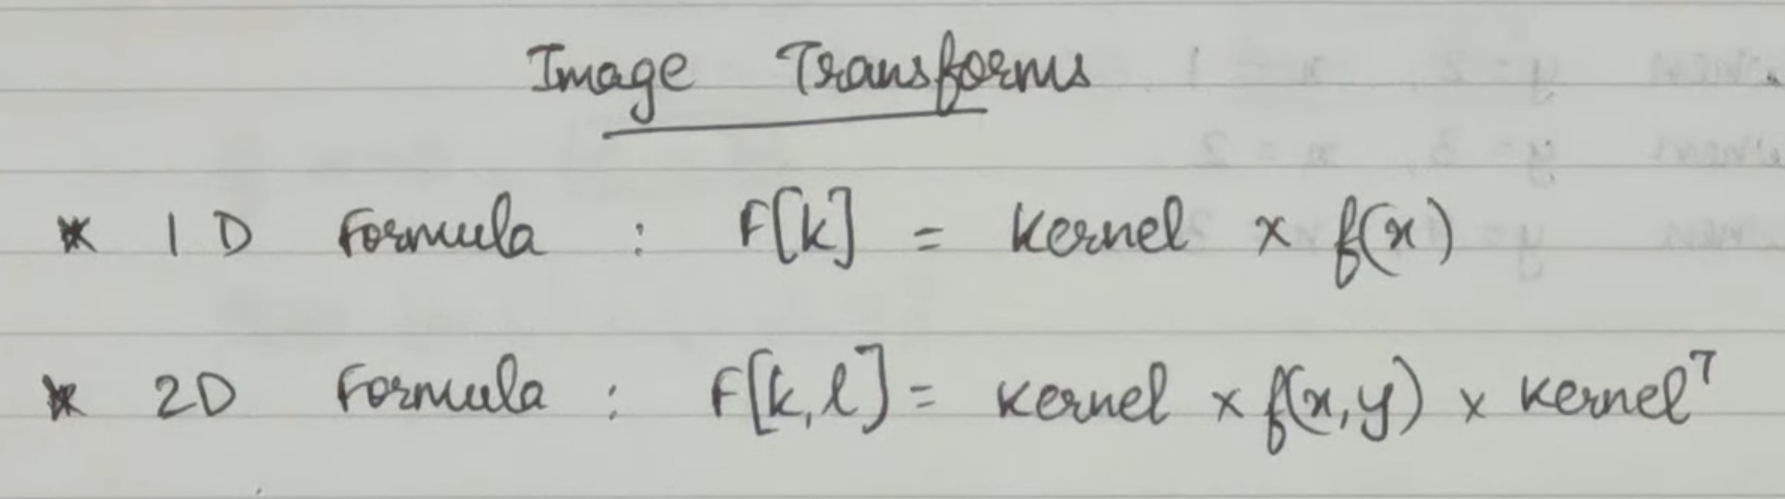 Image Transforms
* 1D Formula : F[k] = Kernel x f(x)
* 2D Formula : F[k,l] = Kernel x f(x,y) x Kernel^T